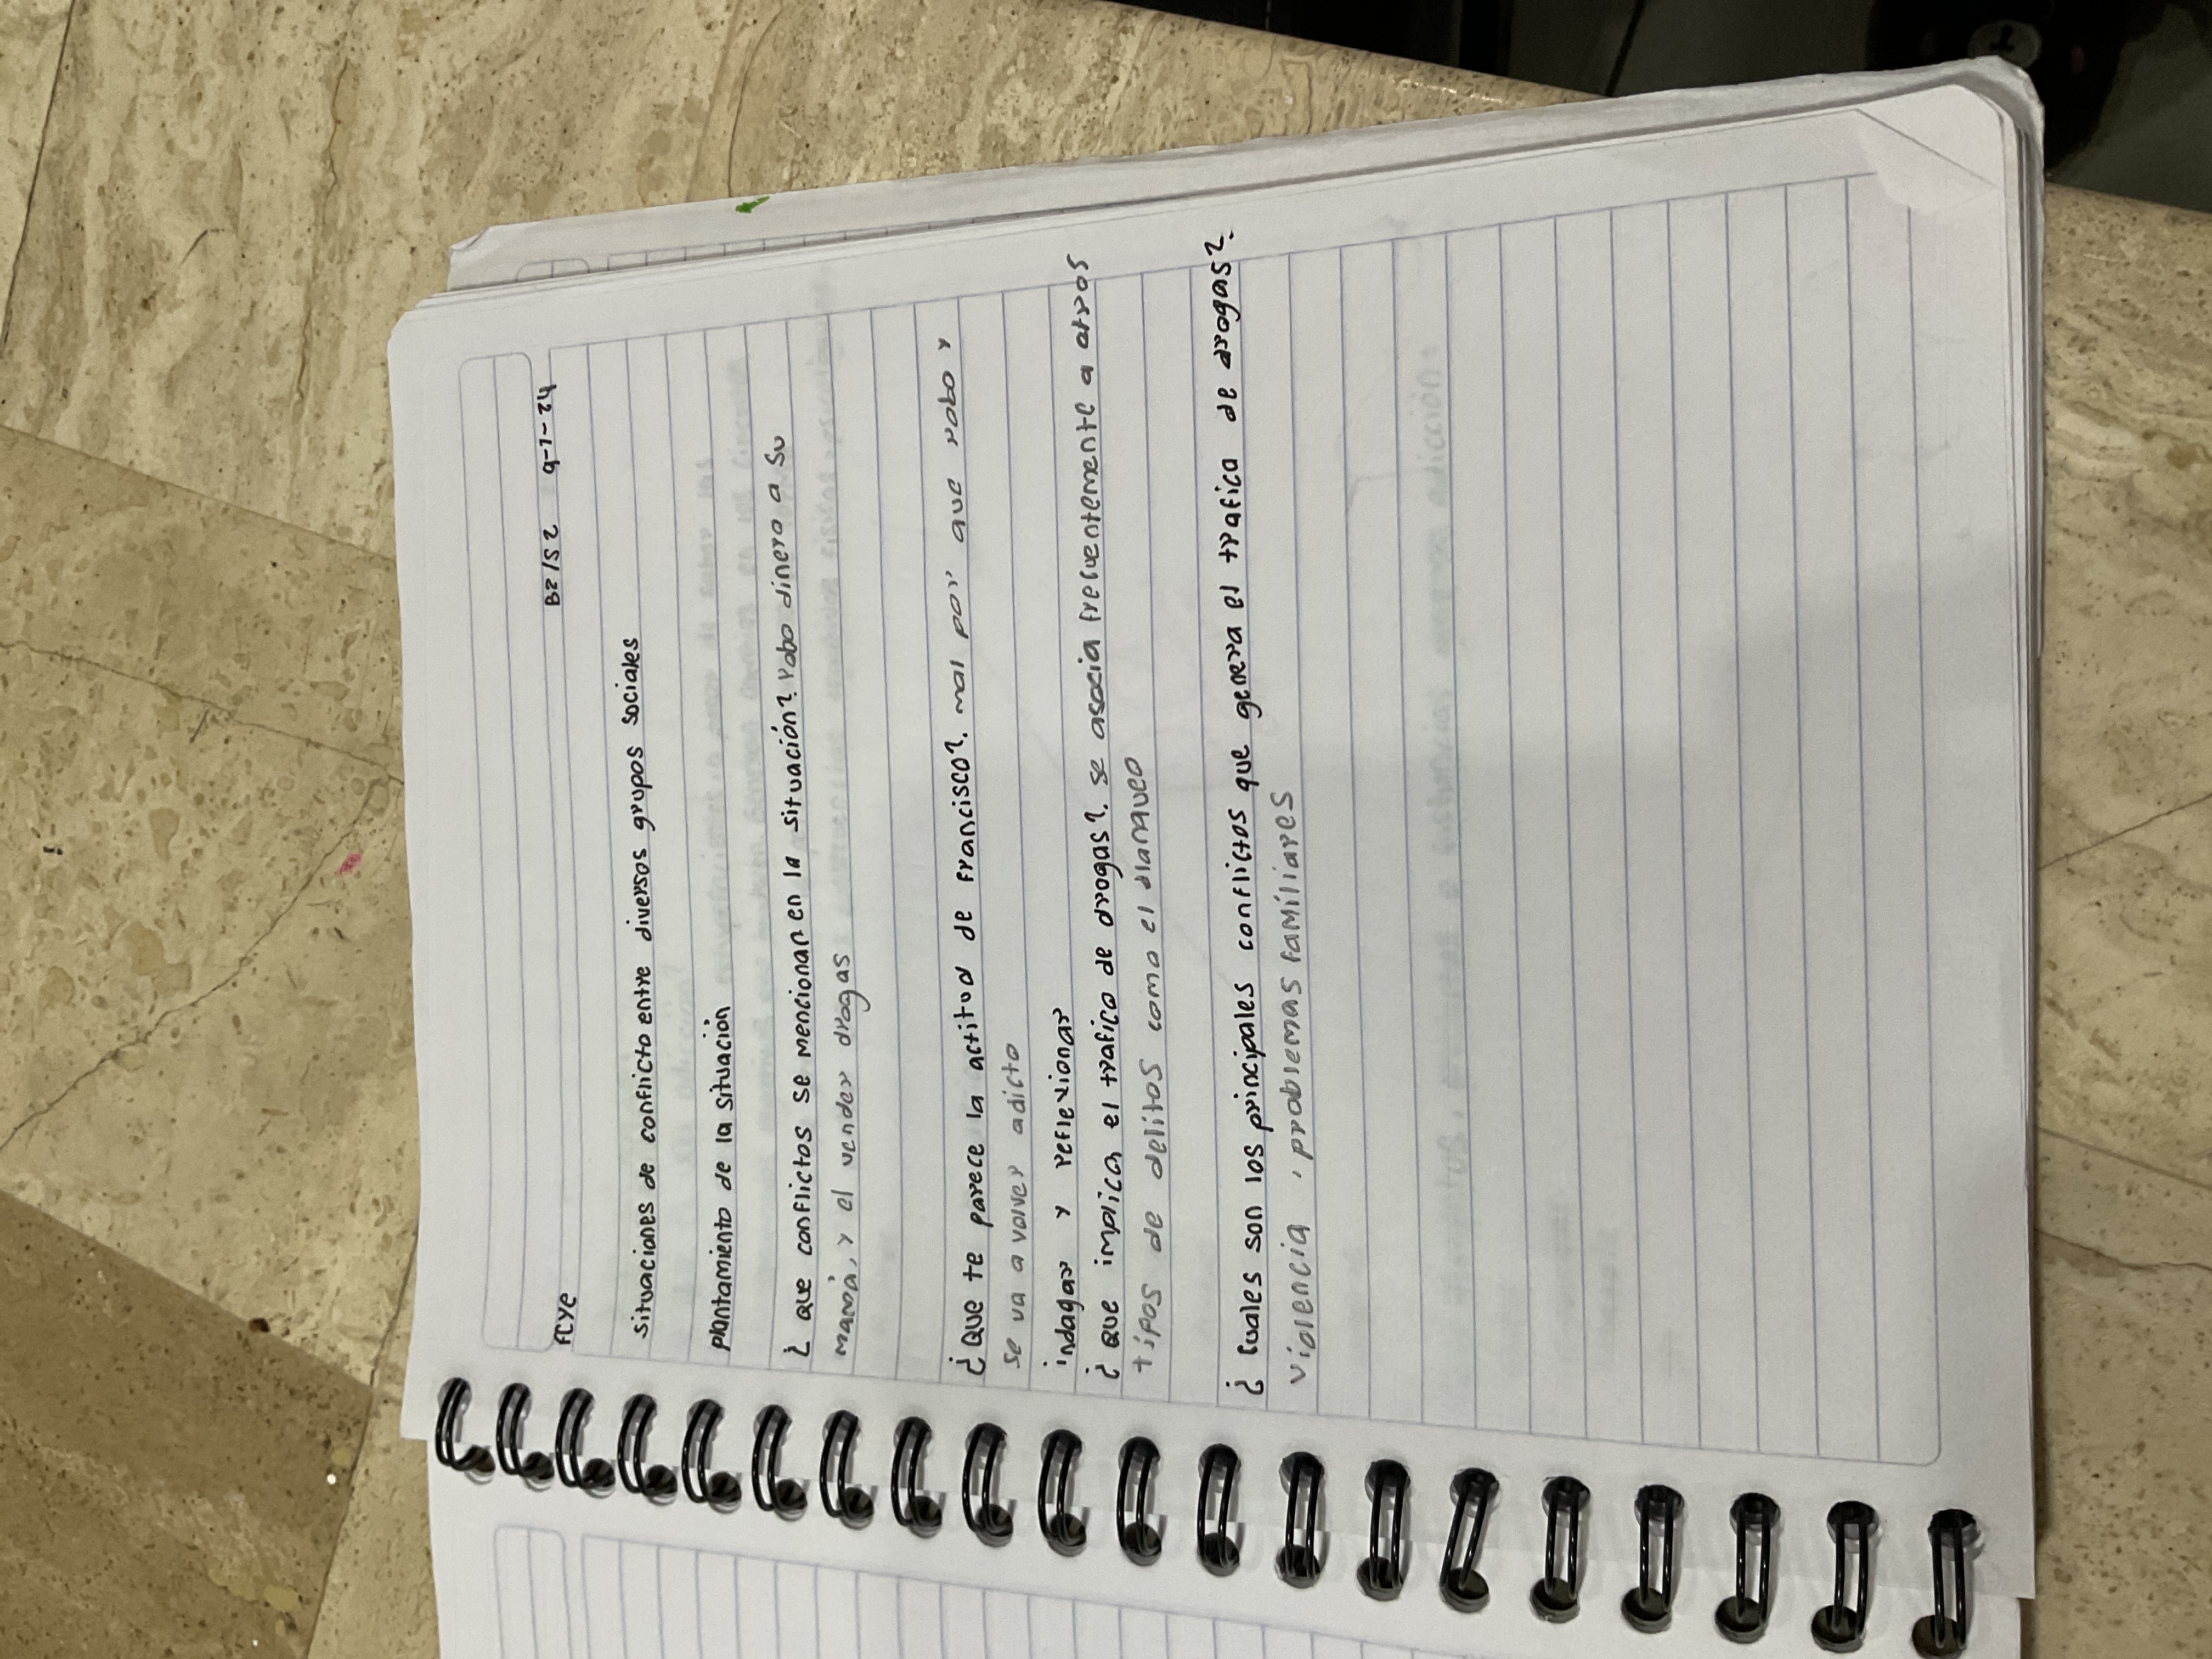 FCYE B2/S2 9-1-24
situaciones de conflicto entre diversos grupos sociales
plantamiento de la situacion
¿ que conflictos se mencionan en la situación? robo dinero a su
mamá, y el vender drogas
¿Que te parece la actitud de francisco?. mal por que robo y
se va a volver adicto
indagar y reflexionar
¿ que implica el trafico de drogas?. se asocia frecuentemente a otros
tipos de delitos como el blanqueo
¿ cuales son los principales conflictos que genera el trafica de drogas?.
violencia , problemas familiares